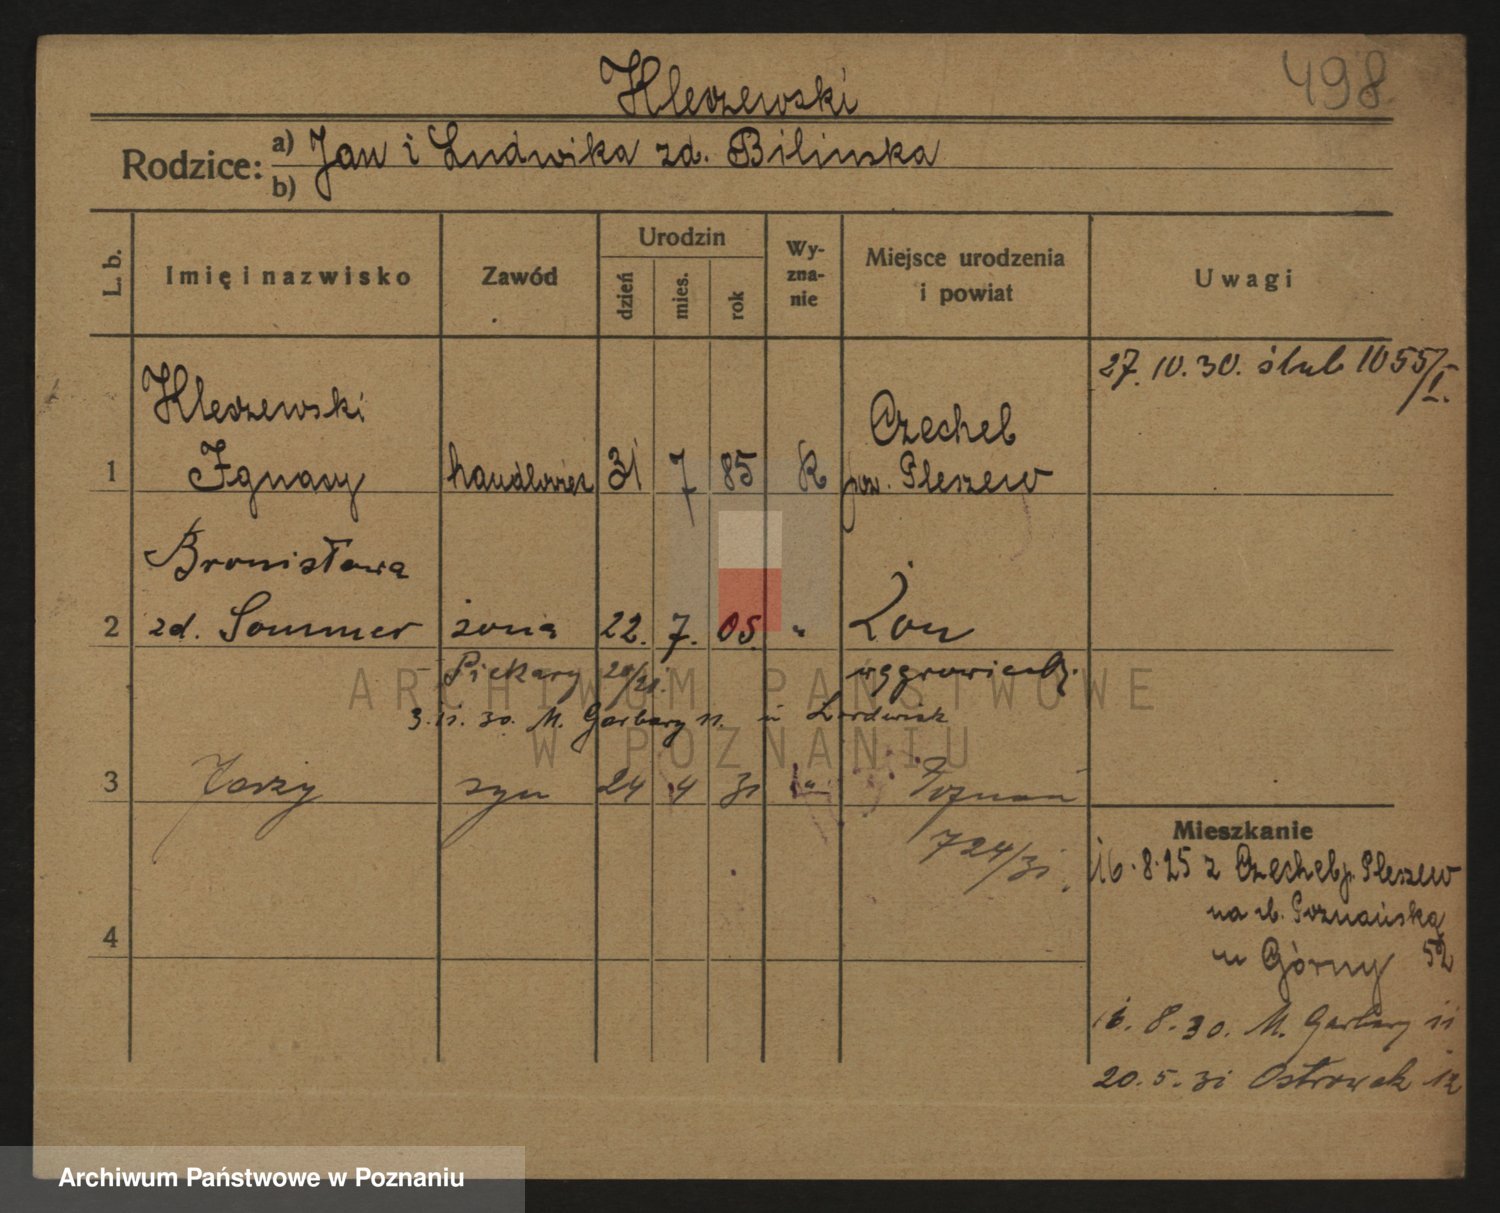 498
Kleszewski
Rodzice: a) Jan i Ludwika zd. Bilinska
b)
L. b.
Imię i nazwisko
Zawód
Urodzin
dzień
mies.
rok
Wy-
zna-
nie
Miejsce urodzenia
i powiat
Uwagi
27.10.30. ślub 1055/I.
Kleszewski
1 Ignacy handlowiec 31 7 85 R
Czechel
pow. Pleszew
Bronisława
2 zd. Sommer żona 22. 7. 05. "
Łon
Piekary 20/21.
3.11.30. M. Garbary 11.
3 Jerzy syn 24 4 31 " Poznań
724/31.
4
Mieszkanie
16.8.25 z Czechel p. Pleszew
na ul. Poznańską
52
u Górny
16.8.30. M. Garbary 11
20.5.31 Ostrówek 12
ARCHIWUM PAŃSTWOWE
W POZNANIU
Archiwum Państwowe w Poznaniu